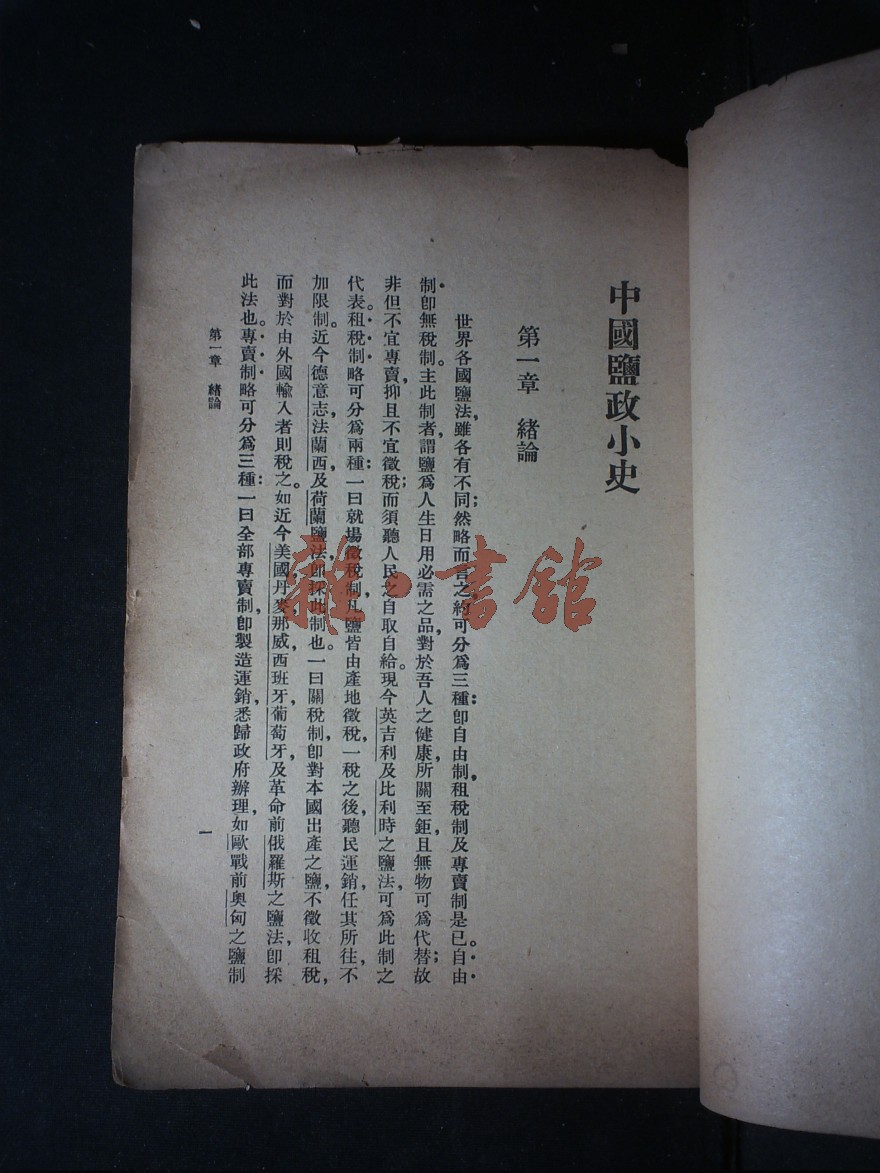 中國鹽政小史
第一章 緒論
世界各國鹽法，雖各有不同；然略而言之，約可分爲三種：卽自由制，租稅制及專賣制是已。自由
制卽無稅制。主此制者，謂鹽爲人生日用必需之品，對於吾人之健康，所關至鉅，且無物可爲代替；故
非但不宜專賣，抑且不宜徵稅；而須聽人民之自取自給。現今英吉利及比利時之鹽法，可爲此制之
代表。租稅制略可分爲兩種：一曰就場徵稅制，凡鹽皆由產地徵稅，一稅之後，聽民運銷，任其所往，不
加限制。近今德意志，法蘭西，及荷蘭鹽法，卽採此制也。一曰關稅制，卽對本國出產之鹽，不徵收租稅，
而對於由外國輸入者則稅之。如近今美國，丹麥，那威，西班牙，葡萄牙，及革命前俄羅斯之鹽法，卽採
此法也。專賣制略可分爲三種：一曰全部專賣制，卽製造運銷，悉歸政府辦理，如歐戰前奧匈之鹽制
第一章 緒論
一
雜·書館